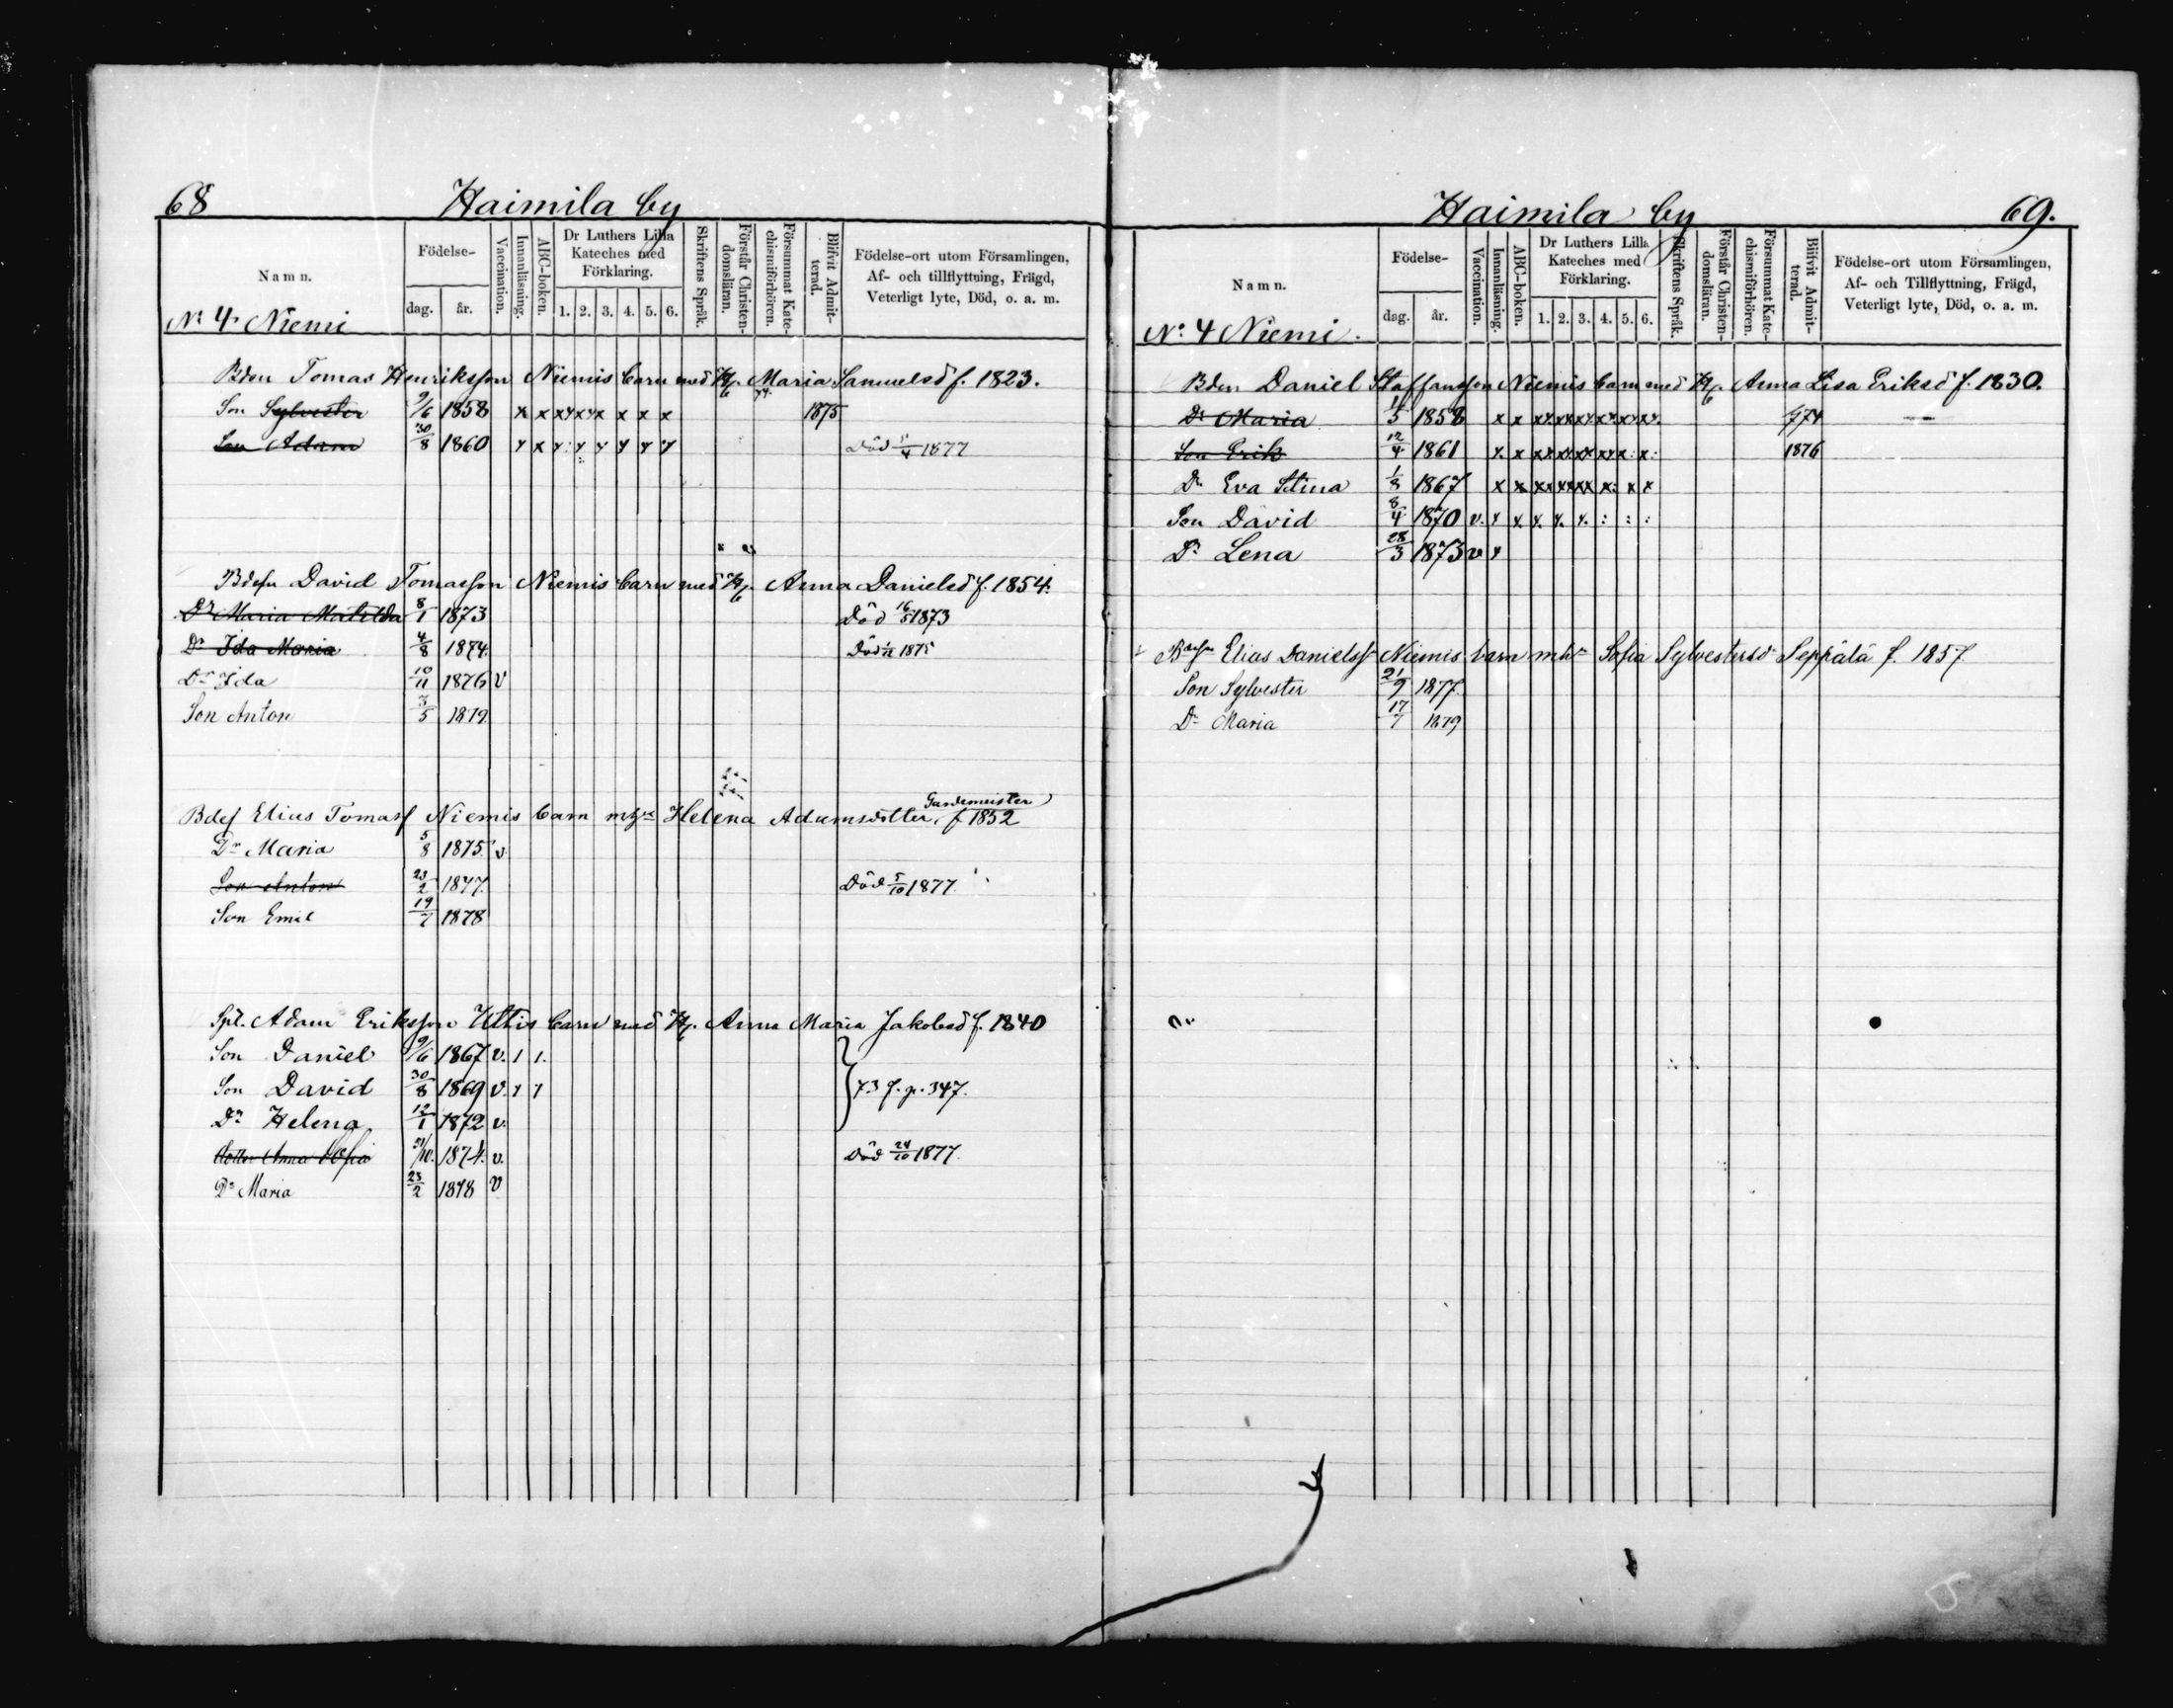 68 Haimila by
Namn. Födelse- dag. år. Vaccination. Innanläsning. ABC-boken. Dr Luthers Lilla Kateches med Förklaring. 1. 2. 3. 4. 5. 6. Skriftens Språk. Förstår Christendomsläran. Försummat Katechismiförhören. Blifvit Admitterad. Födelse-ort utom Församlingen, Af- och tillflyttning, Frägd, Veterligt lyte, Död, o. a. m.
No 4. Niemi
Bden Tomas Henriksson Niemis barn med H. Maria Samuelsd f. 1823.
Son Sylvester 9/6 1858 x x x x x x x x x 1875
Son Adam 30/8 1860 x x x x x x x x Död 5/4 1877
Bdesn David Tomasson Niemis barn med H. Anna Danielsd f. 1854.
Dr Maria Matilda 8/1 1873 Död 16/5 1873
Dr Ida Maria 4/8 1874. Död 1875
Dr Ida 10/11 1876 v
Son Anton 3/5 1879
Bdes Elias Tomass Niemis barn mhu Helena Adamsdotter Gardemeister, f 1852
Dr Maria 5/8 1875. v
Son Anton 23/2 1877. Död 5/10 1877.
Son Emil 19/7 1878
Spl. Adam Eriksson Uttis barn med H. Anna Maria Jakobsd f. 1840
Son Daniel 9/6 1867 v. 1 1.
Son David 30/8 1869 v. x 1 73 f. p. 347.
Dr Helena 12/1 1872 v.
Dotter Anna Sofia 21/10. 1874. v. Död 24/10 1877.
Dr Maria 23/2 1878 v
Haimila by 69.
Namn. Födelse- dag. år. Vaccination. Innanläsning. ABC-boken. Dr Luthers Lilla Kateches med Förklaring. 1. 2. 3. 4. 5. 6. Skriftens Språk. Förstår Christendomsläran. Försummat Katechismiförhören. Blifvit Admitterad. Födelse-ort utom Församlingen, Af- och Tillflyttning, Frägd, Veterligt lyte, Död, o. a. m.
No: 4 Niemi.
Bden Daniel Staffansson Niemis barn med H. Anna Lisa Eriksd f. 1830.
Dr Maria 1/5 1858 x x xx xx xx xx xx xx. 1874 —
Son Erik 12/4 1861 x. x xx xx xx xx x: x: 1876
Dr Eva Stina 1/8 1867 x x xx xx xx x: x x
Son David 8/4 1870 v. x x x. x. x. : : :
Dr Lena 28/3 1873 v x
Bdesn Elias Danielss Niemis barn mhu Sofia Sylvestersd Seppälä f. 1857
Son Sylvester 21/9 1877.
Dr Maria 17/7 1879